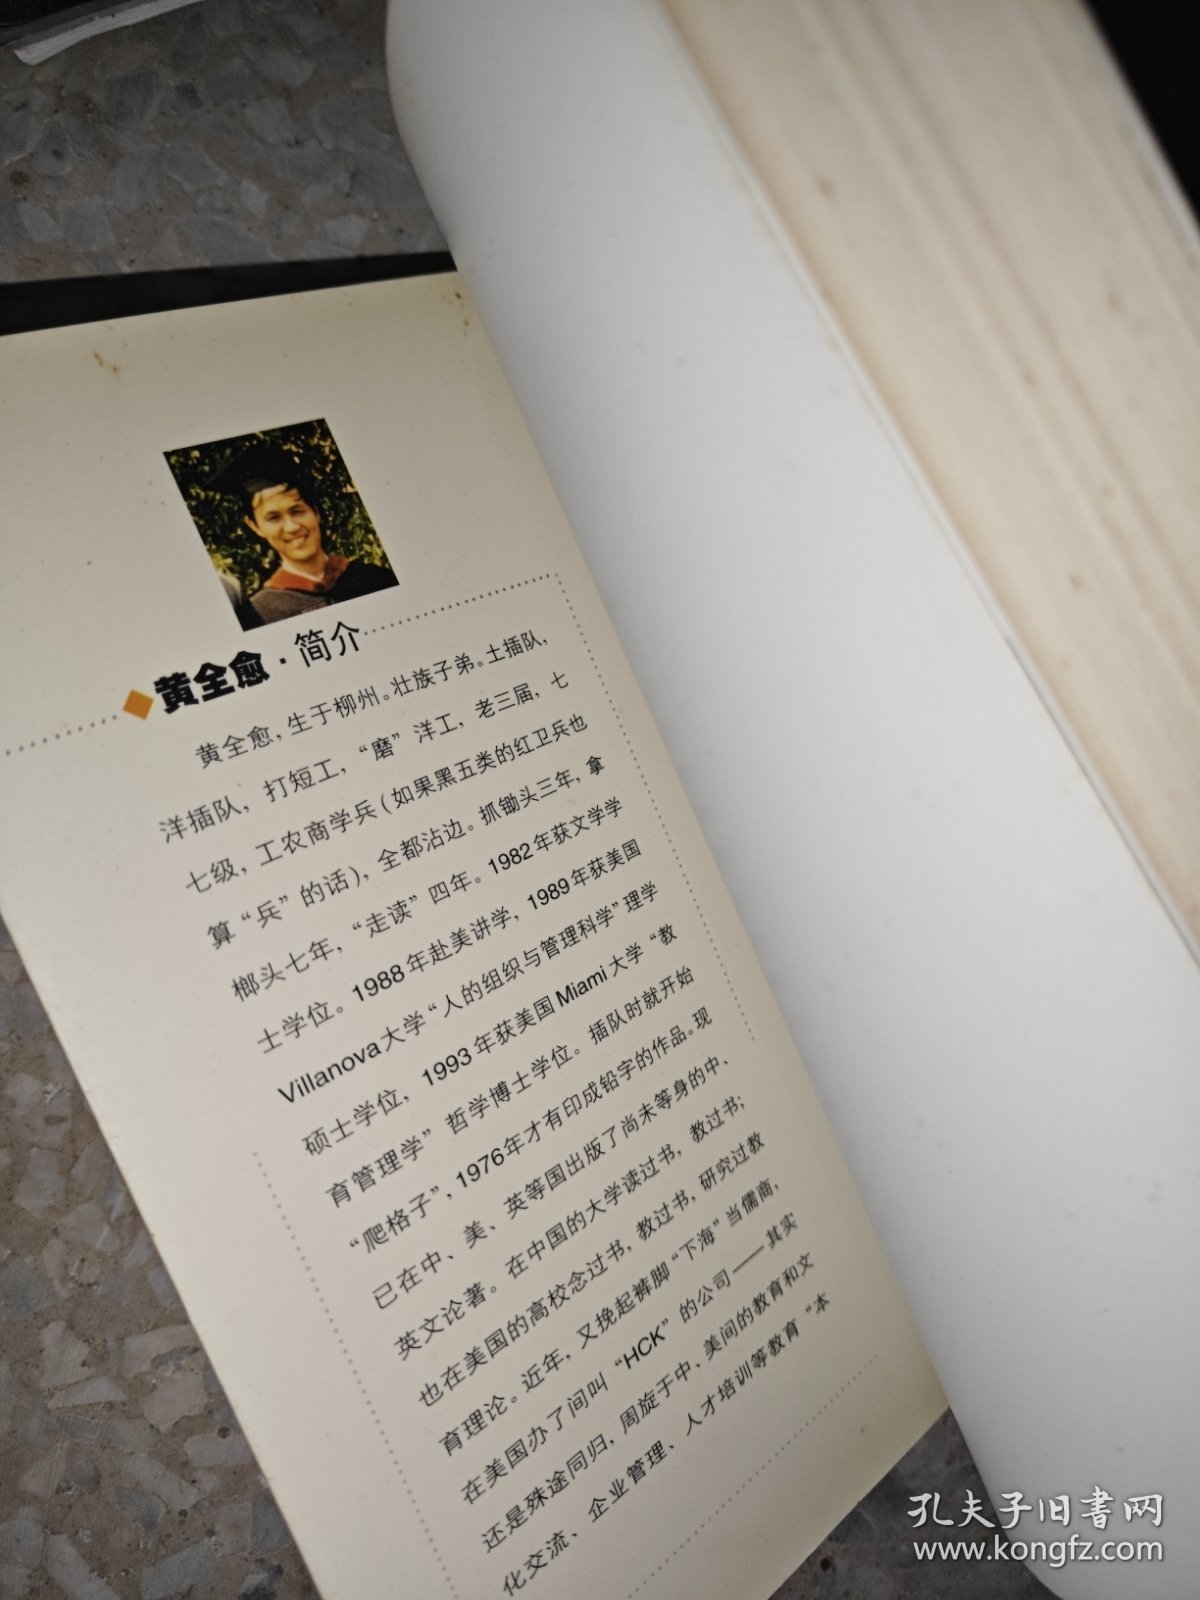 黄全愈·简介
黄全愈，生于柳州。壮族子弟。土插队，
洋插队，打短工，“磨”洋工，老三届，七
七级，工农商学兵（如果黑五类的红卫兵也
算“兵”的话），全都沾边。抓锄头三年，拿
榔头七年，“走读”四年。1982年获文学学
士学位。1988年赴美讲学，1989年获美国
Villanova大学“人的组织与管理科学”理学
硕士学位，1993年获美国Miami大学“教
育管理学”哲学博士学位。插队时就开始
“爬格子”，1976年才有印成铅字的作品。现
已在中、美、英等国出版了尚未等身的中、
英文论著。在中国的大学读过书，教过书；
也在美国的高校念过书，教过书，研究过教
育理论。近年，又挽起裤脚“下海”当儒商，
在美国办了间叫“HCK”的公司——其实
还是殊途同归，周旋于中、美间的教育和文
化交流、企业管理、人才培训等教育“本
孔夫子旧书网
www.kongfz.com